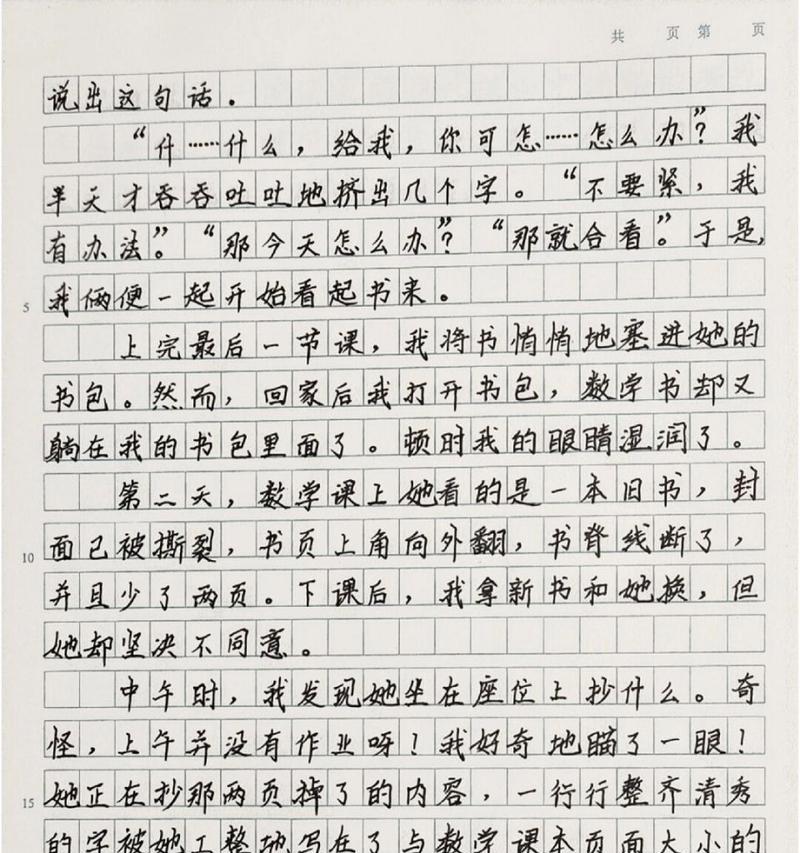 共 页 第 页
说出这句话。
“什……什么，给我，你可怎……怎么办”？我
半天才吞吞吐吐地挤出几个字。“不要紧，我
有办法”。“那今天怎么办”？“那就合看”。于是，
5 我俩便一起开始看起书来。
上完最后一节课，我将书悄悄地塞进她的
书包。然而，回家后我打开书包，数学书却又
躺在我的书包里面了。顿时我的眼睛湿润了。
第二天，数学课上她看的是一本旧书，封
10 面已被撕裂，书页上角向外翻，书脊线断了，
并且少了两页。下课后，我拿新书和她换，但
她却坚决不同意。
中午时，我发现她坐在座位上抄什么。奇
怪，上午并没有作业呀！我好奇地瞄了一眼！
15 她正在抄那两页掉了的内容，一行行整齐清秀
的字被她工整地写在了与数学课本页面大小的